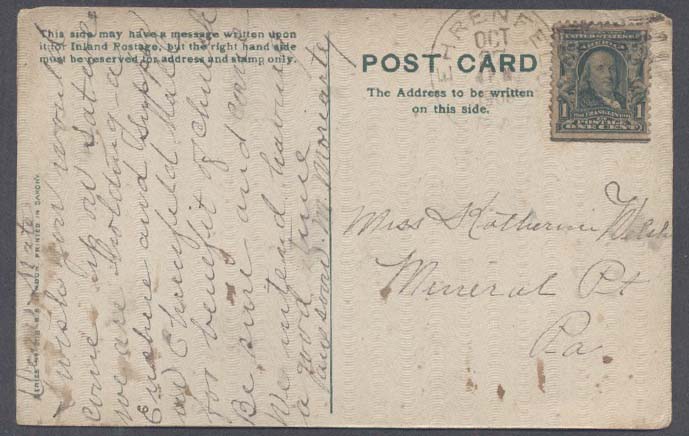 This side may have a message written upon
it for Inland Postage, but the right hand side
must be reserved for address and stamp only.
POST CARD
The Address to be written
on this side.
EHRENFE
OCT
UNITED STATES OF
AMERICA
1 1
POSTAGE
ONE CENT
Miss Katherin Welsh
Mineral Pt
Pa.
I wish you would
come up on Satur
we are holding a
Euchre and Supper
at Ehrenfeld Hall
for benefit of church
Be sure and come
We intend having
a good time
M Moriarty
PRINTED IN SAXONY